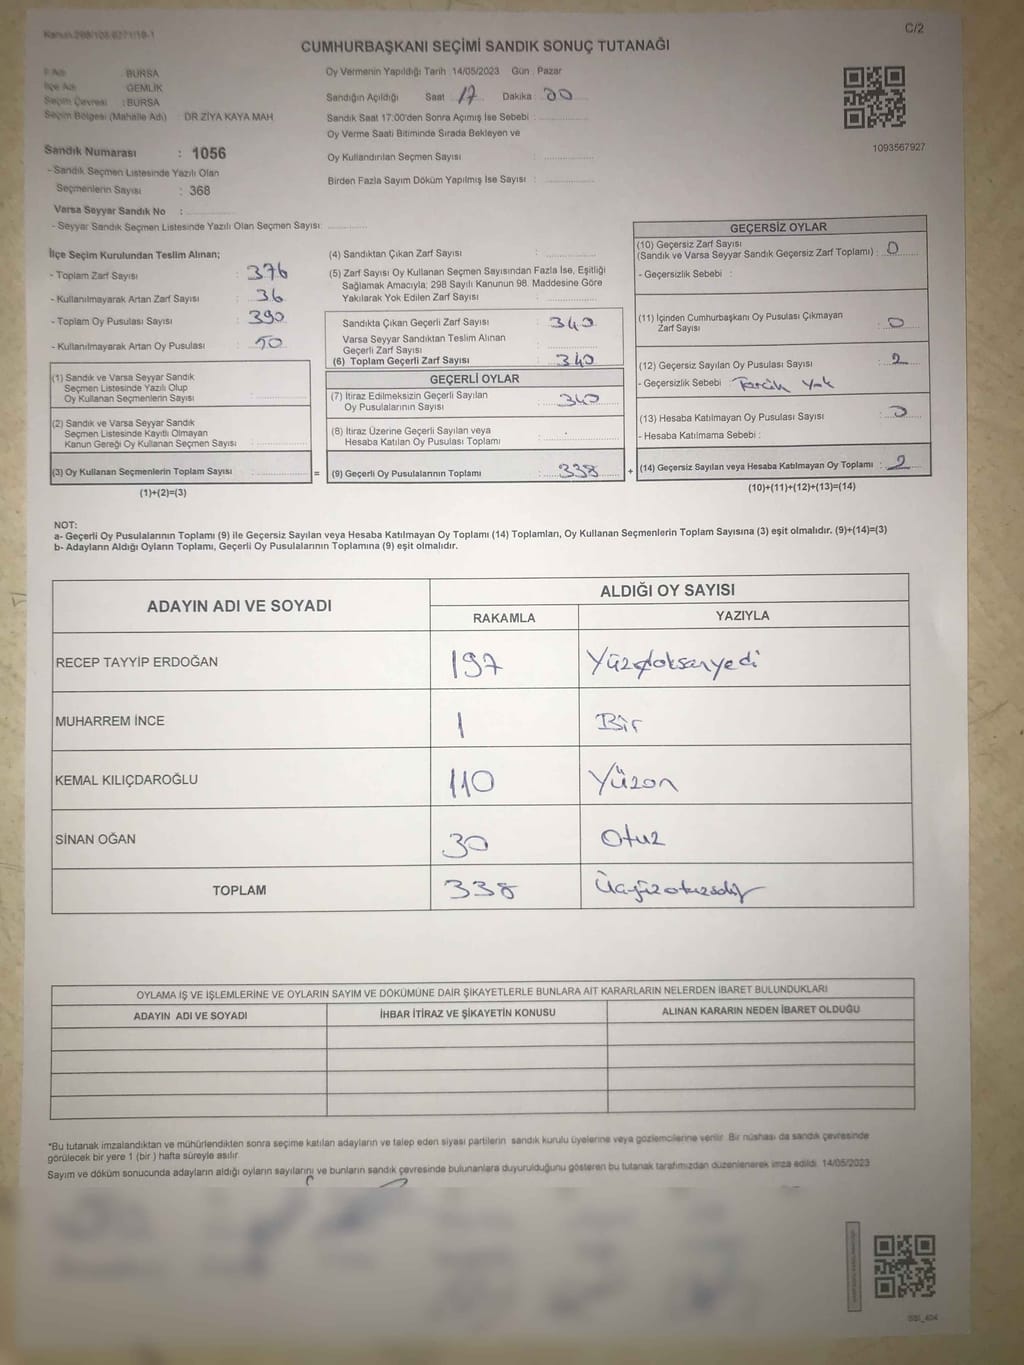 Kanun:298/105-6271/19-1
C/2
CUMHURBAŞKANI SEÇİMİ SANDIK SONUÇ TUTANAĞI
İl Adı : BURSA
İlçe Adı : GEMLİK
Seçim Çevresi : BURSA
Seçim Bölgesi (Mahalle Adı) : DR ZİYA KAYA MAH
Sandık Numarası : 1056
- Sandık Seçmen Listesinde Yazılı Olan
Seçmenlerin Sayısı : 368
Varsa Seyyar Sandık No :
- Seyyar Sandık Seçmen Listesinde Yazılı Olan Seçmen Sayısı:
Oy Vermenin Yapıldığı Tarih 14/05/2023 Gün Pazar
Sandığın Açıldığı Saat 17 Dakika 00
Sandık Saat 17:00'den Sonra Açımış İse Sebebi :
Oy Verme Saati Bitiminde Sırada Bekleyen ve
Oy Kullandırılan Seçmen Sayısı :
Birden Fazla Sayım Döküm Yapılmış İse Sayısı :
1093567927
İlçe Seçim Kurulundan Teslim Alınan;
- Toplam Zarf Sayısı : 376
- Kullanılmayarak Artan Zarf Sayısı : 36
- Toplam Oy Pusulası Sayısı : 390
- Kullanılmayarak Artan Oy Pusulası : 50
(1) Sandık ve Varsa Seyyar Sandık
Seçmen Listesinde Yazılı Olup
Oy Kullanan Seçmenlerin Sayısı :
(2) Sandık ve Varsa Seyyar Sandık
Seçmen Listesinde Kayıtlı Olmayan
Kanun Gereği Oy Kullanan Seçmen Sayısı :
(3) Oy Kullanan Seçmenlerin Toplam Sayısı :
(1)+(2)=(3)
=
(4) Sandıktan Çıkan Zarf Sayısı :
(5) Zarf Sayısı Oy Kullanan Seçmen Sayısından Fazla İse, Eşitliği
Sağlamak Amacıyla; 298 Sayılı Kanunun 98. Maddesine Göre
Yakılarak Yok Edilen Zarf Sayısı :
Sandıkta Çıkan Geçerli Zarf Sayısı : 340
Varsa Seyyar Sandıktan Teslim Alınan
Geçerli Zarf Sayısı :
(6) Toplam Geçerli Zarf Sayısı : 340
GEÇERLİ OYLAR
(7) İtiraz Edilmeksizin Geçerli Sayılan
Oy Pusulalarının Sayısı : 340
(8) İtiraz Üzerine Geçerli Sayılan veya
Hesaba Katılan Oy Pusulası Toplamı :
(9) Geçerli Oy Pusulalarının Toplamı : 338
+
GEÇERSİZ OYLAR
(10) Geçersiz Zarf Sayısı
(Sandık ve Varsa Seyyar Sandık Geçersiz Zarf Toplamı) : 0
- Geçersizlik Sebebi :
(11) İçinden Cumhurbaşkanı Oy Pusulası Çıkmayan
Zarf Sayısı : 0
(12) Geçersiz Sayılan Oy Pusulası Sayısı : 2
- Geçersizlik Sebebi : Tercih Yok
(13) Hesaba Katılmayan Oy Pusulası Sayısı : 0
- Hesaba Katılmama Sebebi :
(14) Geçersiz Sayılan veya Hesaba Katılmayan Oy Toplamı : 2
(10)+(11)+(12)+(13)=(14)
NOT:
a- Geçerli Oy Pusulalarının Toplamı (9) ile Geçersiz Sayılan veya Hesaba Katılmayan Oy Toplamı (14) Toplamları, Oy Kullanan Seçmenlerin Toplam Sayısına (3) eşit olmalıdır. (9)+(14)=(3)
b- Adayların Aldığı Oyların Toplamı, Geçerli Oy Pusulalarının Toplamına (9) eşit olmalıdır.
ADAYIN ADI VE SOYADI
ALDIĞI OY SAYISI
RAKAMLA YAZIYLA
RECEP TAYYİP ERDOĞAN 197 Yüzdoksanyedi
MUHARREM İNCE 1 Bir
KEMAL KILIÇDAROĞLU 110 Yüzon
SİNAN OĞAN 30 Otuz
TOPLAM 338 Üçyüzotuzsekiz
OYLAMA İŞ VE İŞLEMLERİNE VE OYLARIN SAYIM VE DÖKÜMÜNE DAİR ŞİKAYETLERLE BUNLARA AİT KARARLARIN NELERDEN İBARET BULUNDUKLARI
ADAYIN ADI VE SOYADI İHBAR İTİRAZ VE ŞİKAYETİN KONUSU ALINAN KARARIN NEDEN İBARET OLDUĞU
*Bu tutanak imzalandıktan ve mühürlendikten sonra seçime katılan adayların ve talep eden siyasi partilerin sandık kurulu üyelerine veya gözlemcilerine verilir. Bir nüshası da sandık çevresinde
görülecek bir yere 1 (bir ) hafta süreyle asılır.
Sayım ve döküm sonucunda adayların aldığı oyların sayılarını ve bunların sandık çevresinde bulunanlara duyurulduğunu gösteren bu tutanak tarafımızdan düzenlenerek imza edildi. 14/05/2023